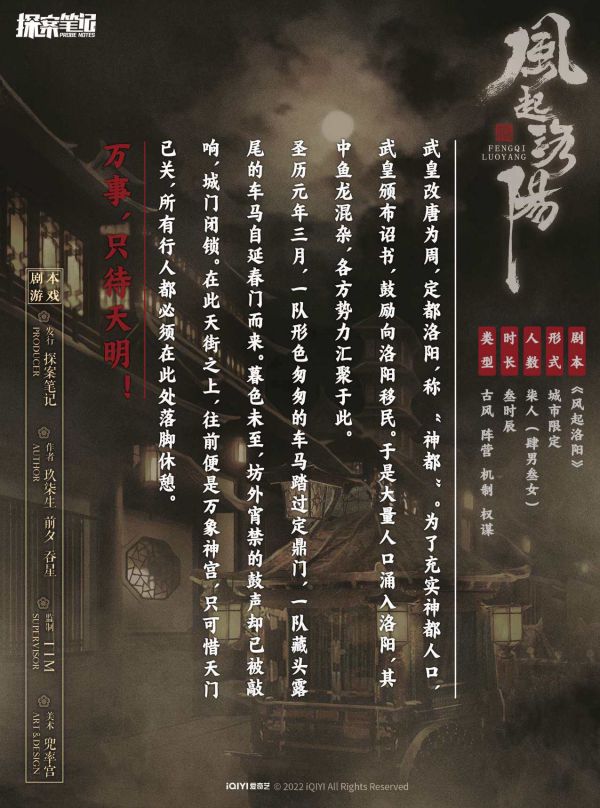 探案笔记
PROBE NOTES
風起洛陽
FENGQI
LUOYANG
剧本 《风起洛阳》
形式 城市限定
人数 柒人（肆男叁女）
时长 叁时辰
类型 古风 阵营 机制 权谋
武皇改唐为周，定都洛阳，称“神都”。为了充实神都人口，
武皇颁布诏书，鼓励向洛阳移民。于是大量人口涌入洛阳，其
中鱼龙混杂，各方势力汇聚于此。
圣历元年三月，一队形色匆匆的车马踏过定鼎门，一队藏头露
尾的车马自延春门而来。暮色未至，坊外宵禁的鼓声却已被敲
响，城门闭锁。在此天街之上，往前便是万象神宫，只可惜天门
已关，所有行人都必须在此处落脚休憩。
万事，只待天明！
剧本
游戏
发行
PRODUCER
探案笔记
作者
AUTHOR
玖柒生 前夕 吞星
监制
SUPERVISOR
IIM
美术
ART&DESIGN
兜率宫
iQIYI 爱奇艺 © 2022 iQIYI All Rights Reserved